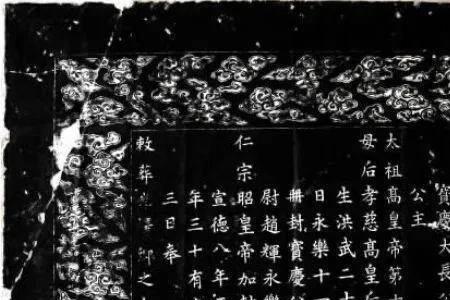 寶慶大長
公主
太祖高皇帝第
母后孝慈高皇
生洪武二十
日永樂十一
冊封寶慶
尉趙輝永樂
仁宗昭皇帝加
宣德八年
年三十有
三日奉
敕葬之